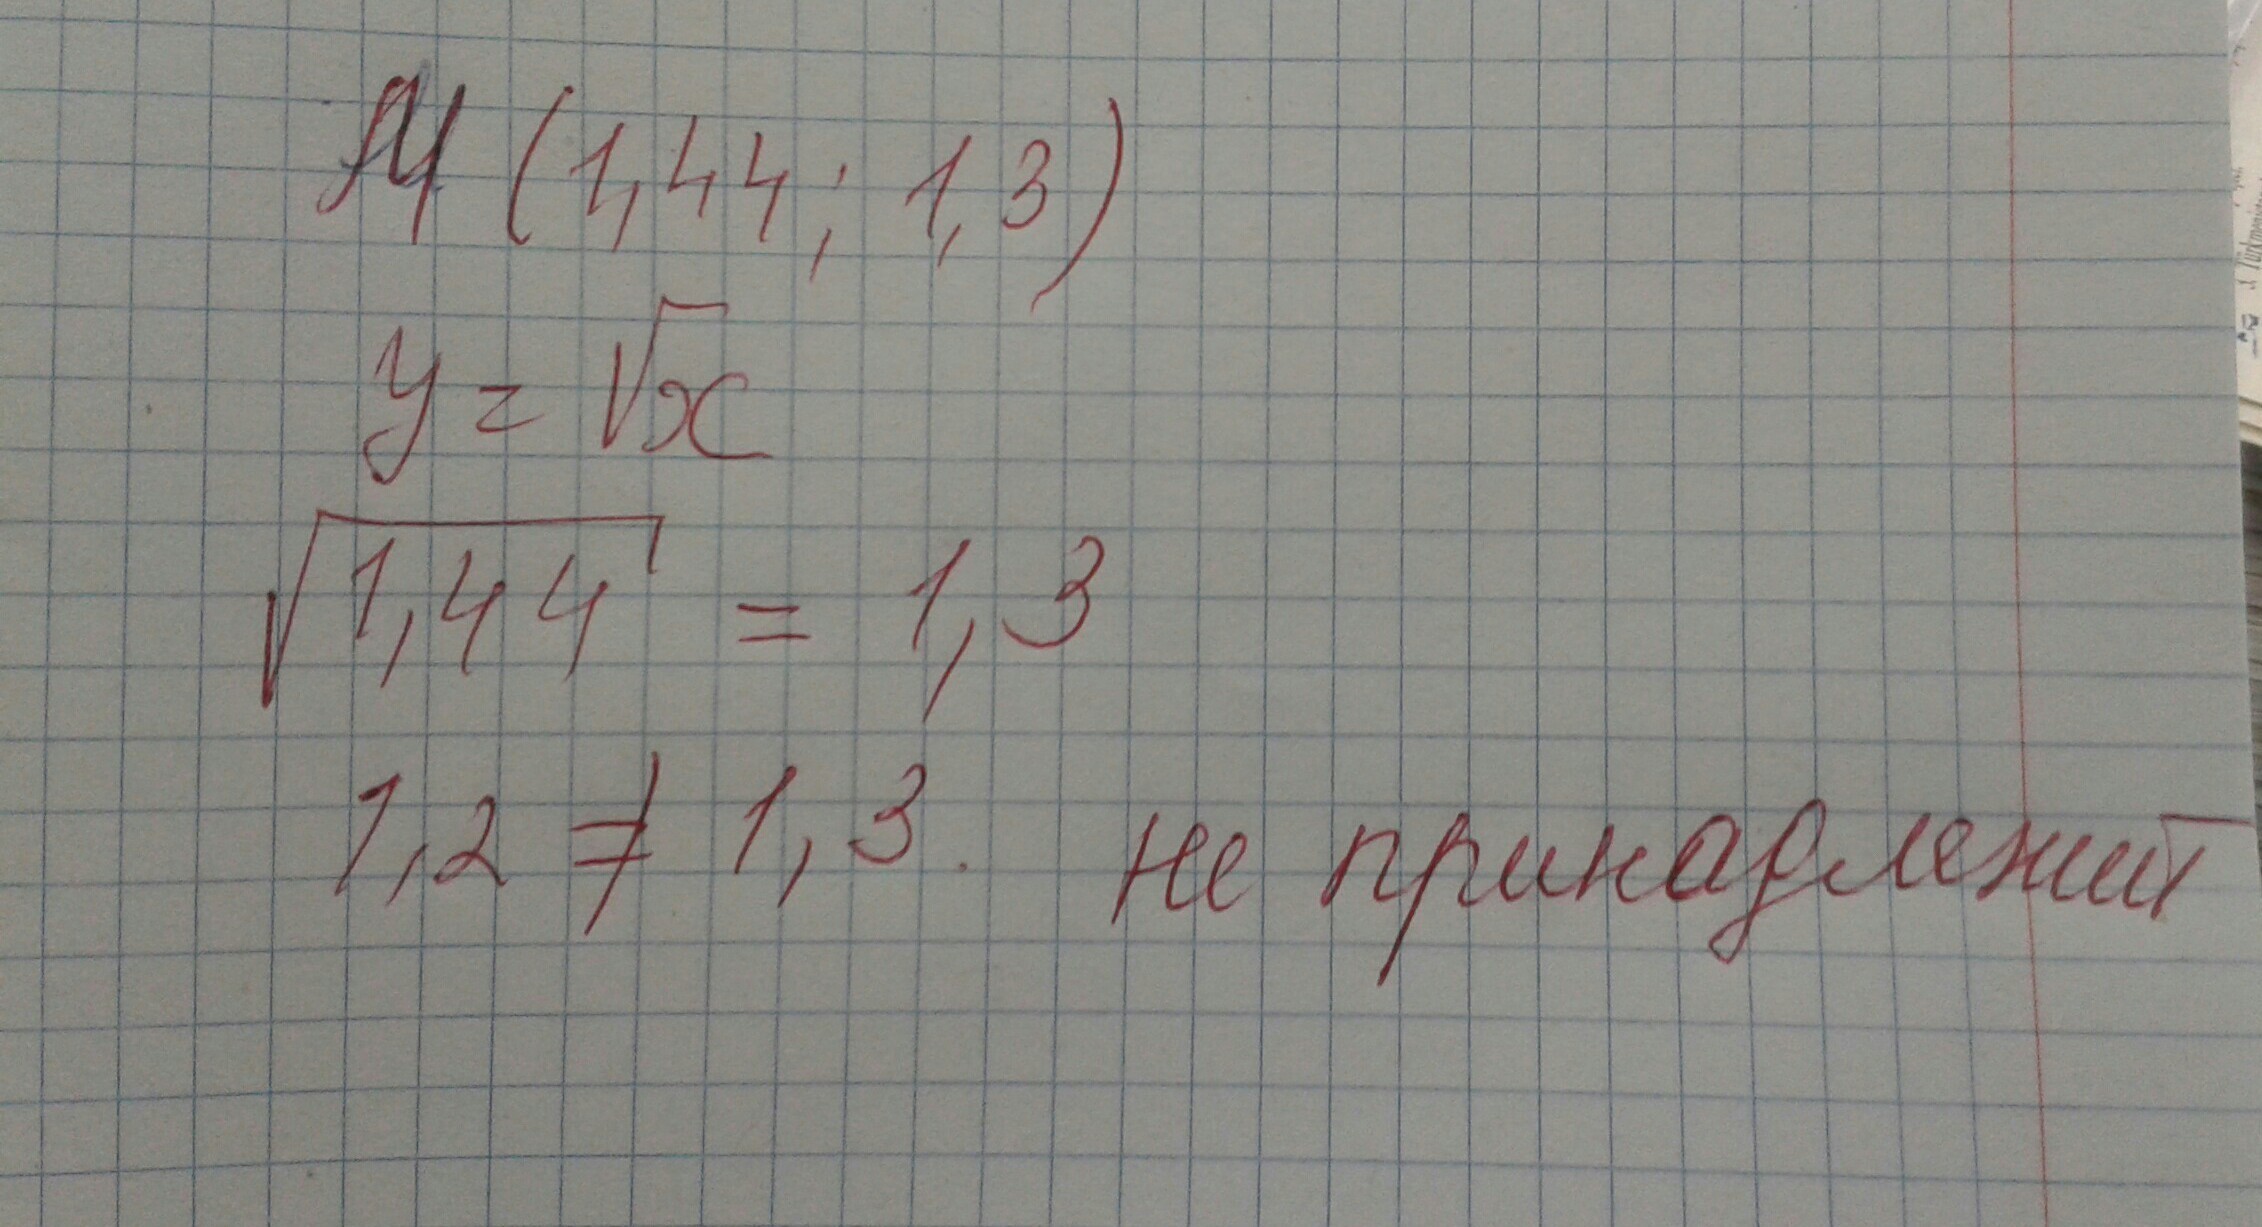 М (1,44; 1,3)
y = √x
√1,44 = 1,3
1,2 ≠ 1,3. не принадлежит